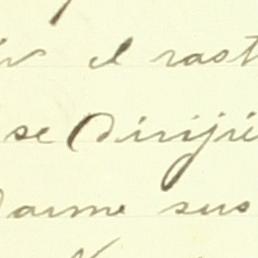 el rast
se dirijie
darme sus